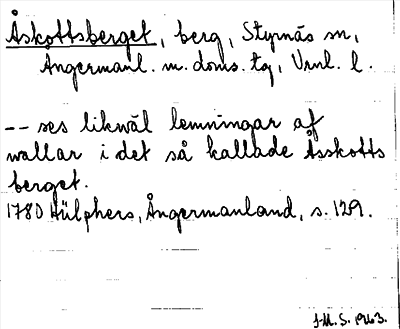 Åskottsberget, berg, Styrnäs sn,
Ångermanl. m. doms. tg, Vnl. l.
-- ses likwäl lemningar af
wallar i det så kallade Åsskotts
berget.
1780 Hülphers, Ångermanland, s. 129.
J-M. S. 1963.